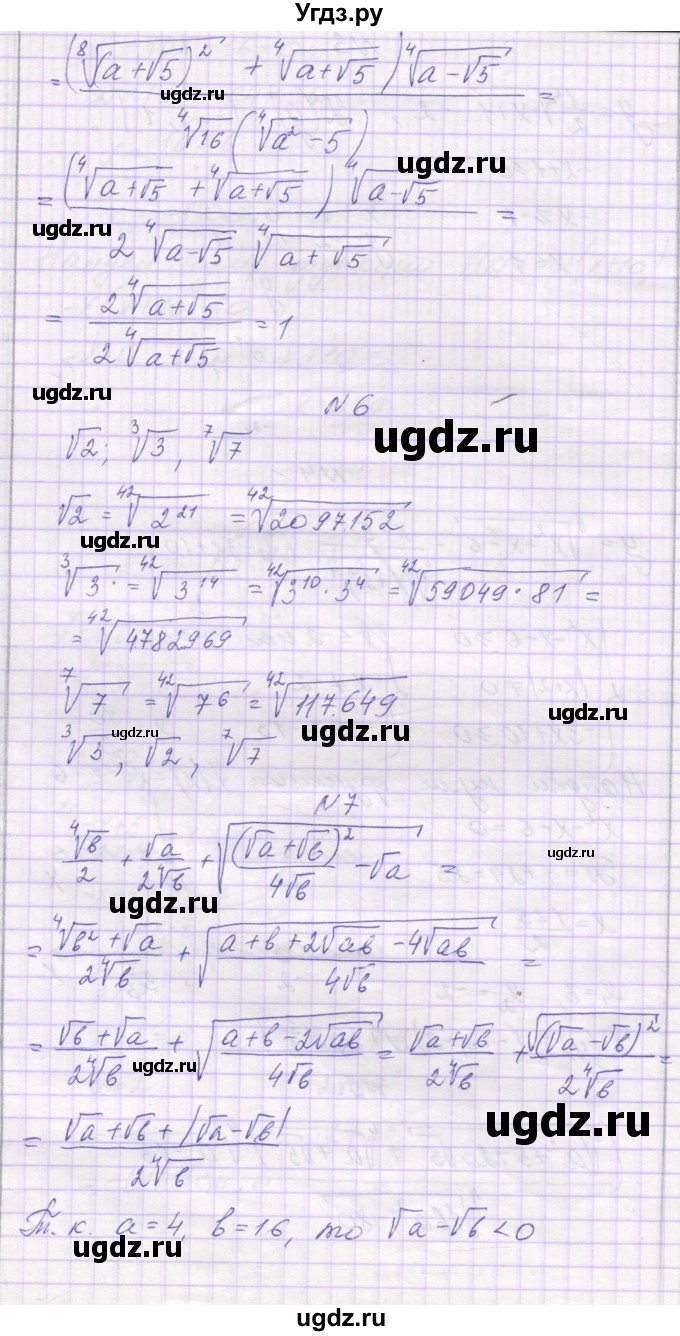 Угдз.ру
= ((⁸√(a+√5)² + ⁴√(a+√5)) ⁴√(a-√5)) / (⁴√16 (⁴√(a²-5))) =
ugdz.ru
ugdz.ru
= ((⁴√(a+√5) + ⁴√(a+√5)) ⁴√(a-√5)) / (2 ⁴√(a-√5) ⁴√(a+√5)) =
ugdz.ru
ugdz.ru
= (2 ⁴√(a+√5)) / (2 ⁴√(a+√5)) = 1
ugdz.ru
N 6
ugdz.ru
√2; ³√3, ⁷√7
√2 = ⁴²√(2²¹) = ⁴²√2097152
ugdz.ru
³√3 = ⁴²√(3¹⁴) = ⁴²√(3¹⁰·3⁴) = ⁴²√(59049·81) =
= ⁴²√4782969
⁷√7 = ⁴²√(7⁶) = ⁴²√117649
ugdz.ru
ugdz.ru
ugdz.ru
³√3, √2, ⁷√7
N 7
⁴√b/2 + √a/(2⁴√b) + √((√a+√b)²/(4√b) - √a) =
ugdz.ru
ugdz.ru
= (⁴√b² + √a)/(2⁴√b) + √((a+b+2√ab - 4√ab)/(4√b)) =
= (√b+√a)/(2⁴√b) + √((a+b-2√ab)/(4√b)) = (√a+√b)/(2⁴√b) + √(√a-√b)²/(2⁴√b) =
ugdz.ru
ugdz.ru
= (√a+√b+|√a-√b|)/(2⁴√b)
Т. к. a=4, b=16, то √a-√b<0
ugdz.ru
ugdz.ru